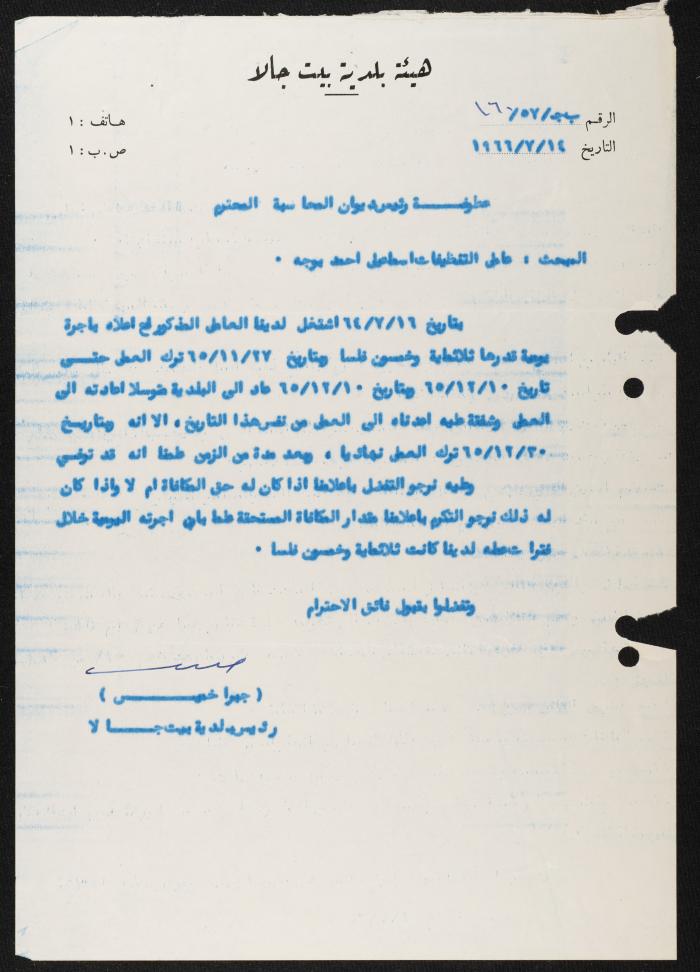 هيئة بلدية بيت جالا
الرقم ب ج/٥٧/١٦
هاتف : ١
التاريخ ١٩٦٦/٧/١٤
ص.ب : ١
عطوفة رئيس ديوان المحاسبة المحترم
المبحث : عامل التنظيفات اسماعيل احمد .
بتاريخ ٦٤/٧/١٦ اشتغل لدينا العامل المذكور اعلاه باجرة
يومية قدرها ثلاثماية وخمسون فلسا وبتاريخ ٦٥/١١/٢٧ ترك العمل حتى
تاريخ ٦٥/١٢/١٠ وبتاريخ ٦٥/١٢/١٠ عاد الى البلدية متوسلا اعادته الى
العمل وشفقة عليه اعدناه الى العمل من نفس هذا التاريخ ، الا انه وبتاريخ
٦٥/١٢/٣٠ ترك العمل نهائيا ، وبعد مدة من الزمن علمنا انه قد توفي
وعليه نرجو التفضل باعلامنا اذا كان له حق المكافاة ام لا واذا كان
له ذلك نرجو التكرم باعلامنا مقدار المكافاة المستحقة علما بان اجرته اليومية خلال
فترات عمله لدينا كانت ثلاثماية وخمسون فلسا .
وتفضلوا بقبول فائق الاحترام
( جبرا خميس )
رئيس بلدية بيت جالا